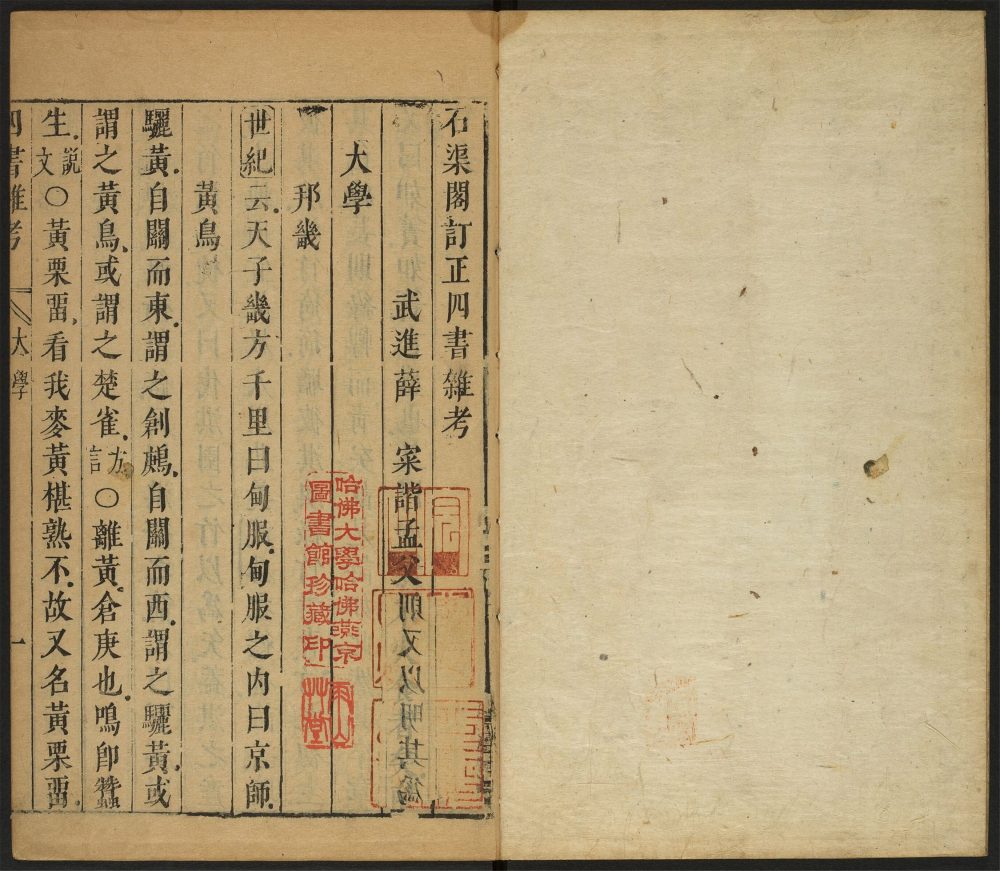 石渠閣訂正四書雜考
武進薛寀諧孟父
大學
邦畿
世紀云天子畿方千里曰甸服甸服之内曰京師
黃鳥
驪黃自關而東謂之創鴳自關而西謂之驪黃或
謂之黃鳥或謂之楚雀方言○離黃倉庚也鳴卽蠶
生説文○黃栗畱看我麥黃椹熟不故又名黃栗畱
四書雜考 大學 一
哈佛大學哈佛燕京
圖書館珍藏印